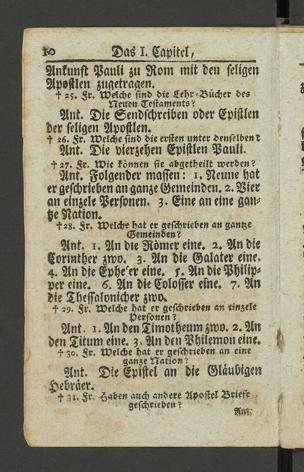 10 Das I. Capitel,
Ankunft Pauli zu Rom mit den seligen
Apostlen zugetragen.
† 25. Fr. Welche sind die Lehr-Bücher des
Neuen Testaments?
Ant. Die Sendschreiben oder Epistlen
der seligen Apostlen.
† 26. Fr. Welche sind die ersten unter denselben?
Ant. Die vierzehen Epistlen Pauli.
† 27. Fr. Wie können sie abgetheilt werden?
Ant. Folgender massen: 1. Neune hat
er geschrieben an ganze Gemeinden. 2. Vier
an einzele Personen. 3. Eine an eine gan-
tze Nation.
† 28. Fr. Welche hat er geschrieben an ganze
Gemeinden?
Ant. 1. An die Römer eine. 2. An die
Corinther zwo. 3. An die Galater eine.
4. An die Epheser eine. 5. An die Philip-
per eine. 6. An die Colosser eine. 7. An
die Thessalonicher zwo.
† 29. Fr. Welche hat er geschrieben an einzele
Personen?
Ant. 1. An den Timotheum zwo. 2. An
den Titum eine. 3. An den Philemon eine.
† 30. Fr. Welche hat er geschrieben an eine
ganze Nation?
Ant. Die Epistel an die Gläubigen
Hebräer.
† 31. Fr. Haben auch andere Apostel Briefe
geschrieben?
Ant.